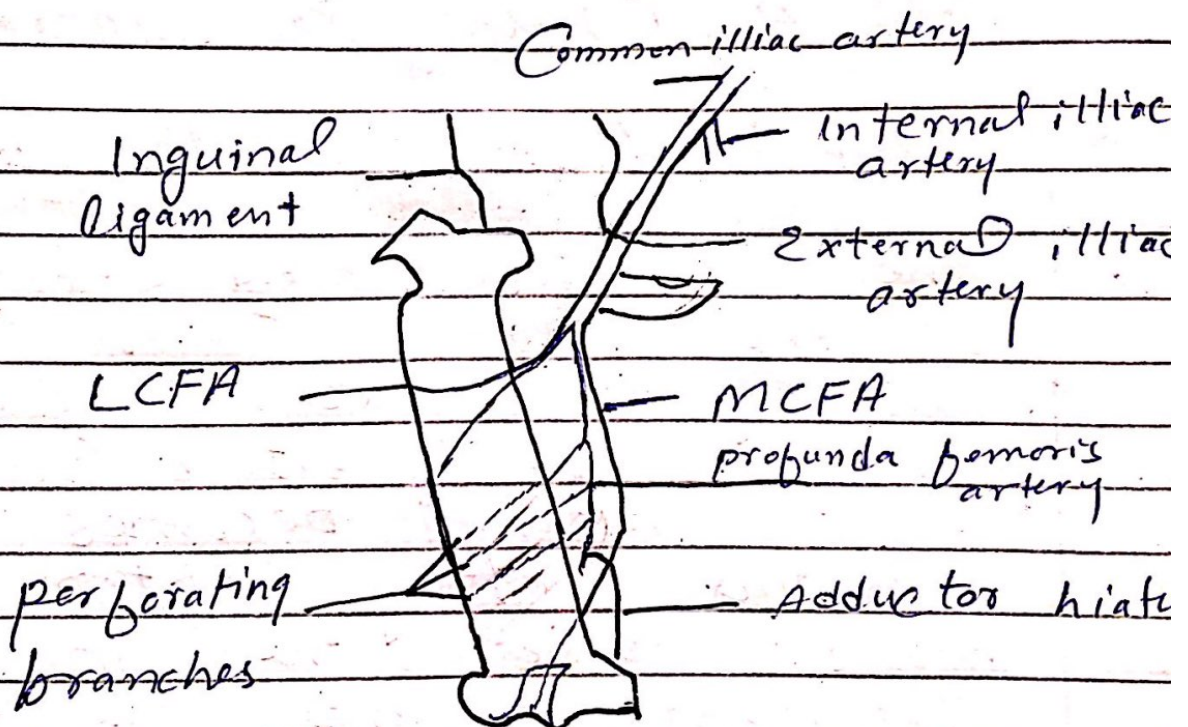 Common illiac artery
Inguinal
ligament
Internal illiac
artery
External illiac
artery
LCFA
MCFA
profunda femoris
artery
perforating
branches
Adductor hiatu